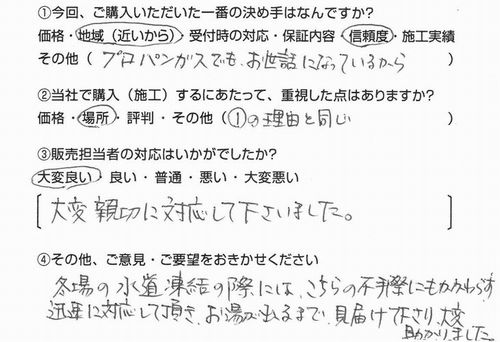 ①今回、ご購入いただいた一番の決め手はなんですか?
価格・地域(近いから)・受付時の対応・保証内容・信頼度・施工実績
その他(プロパンガスでも、お世話になっているから)
②当社で購入(施工)するにあたって、重視した点はありますか?
価格・場所・評判・その他(①の理由と同じ)
③販売担当者の対応はいかがでしたか?
大変良い・良い・普通・悪い・大変悪い
[大変親切に対応して下さいました。]
④その他、ご意見・ご要望をおきかせください
冬場の水道凍結の際には、こちらの不手際にもかかわらず
迅速に対応して頂き、お湯が出るまで、見届け下さり、大変
助かりました